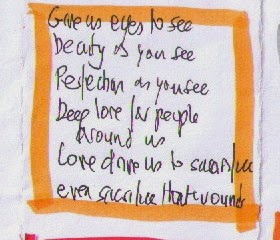 Give us eyes to see
beauty as you see
Perfection as you see
Deep love for people
Around us
Love drive us to sacrifice
even sacrifice that wounds